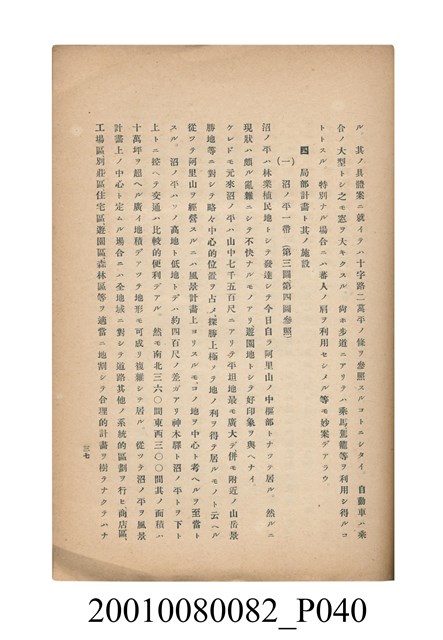 ル。其ノ具體案ニ就イテハ十字路二萬平ノ條ヲ參照スルコトニシタイ。自動車ハ乘
合ノ大型トシ之モ窓ヲ大キクスル。尙ホ步道ニアリテハ乘馬駕籠等ヲ利用シ得ルコ
トトスル。特別ナル場合ニハ蕃人ノ肩ヲ利用セシメル等モ妙案デアラウ
四 局部計畫ト其ノ施設
(一) 沼ノ平一帶(第三圖第四圖參照)
沼ノ平ハ林業植民地トシテ發達シテ今日自ラ阿里山ノ中樞部トナツテ居ル。然ルニ
現狀ハ頗ル亂雜ニシテ不快ナルモノアリ遊園地トシテ好印象ヲ與ヘナイ。
ケレドモ元來沼ノ平ハ山中七千五百尺ニアリテ平坦地最モ廣大デ併モ附近ノ山岳景
勝地等ニ對シテ略々中心的位置ヲ占メ、探勝上極メテ地ノ利ヲ得テ居ルモノト云ヘル
從ツテ阿里山ヲ經營スルニハ風景計畫上ヨリスルモコノ地ヲ中心ト考ヘルヲ至當ト
スル。沼ノ平ハソノ高地ト低地トデハ約四百尺ノ差ガアリ神木驛ト沼ノ平トヲ下ト
上トニ控ヘテ交通ハ比較的便利デアル。然モ南北三六〇間東西三〇〇間其ノ面積ハ
十萬坪ヲ超ヘル廣イ地積デアツテ地形モ可成リ複雜シテ居ル。從ツテ沼ノ平ヲ風景
計畫上ノ中心ト定ムル場合ニハ全地域ニ對シテ道路其他ノ系統的區劃ヲ行ヒ商店區、
工場區別莊區住宅區遊園區森林區等ヲ適當ニ地割シテ合理的計畫ヲ樹ラナクテハナ
三七
20010080082_P040